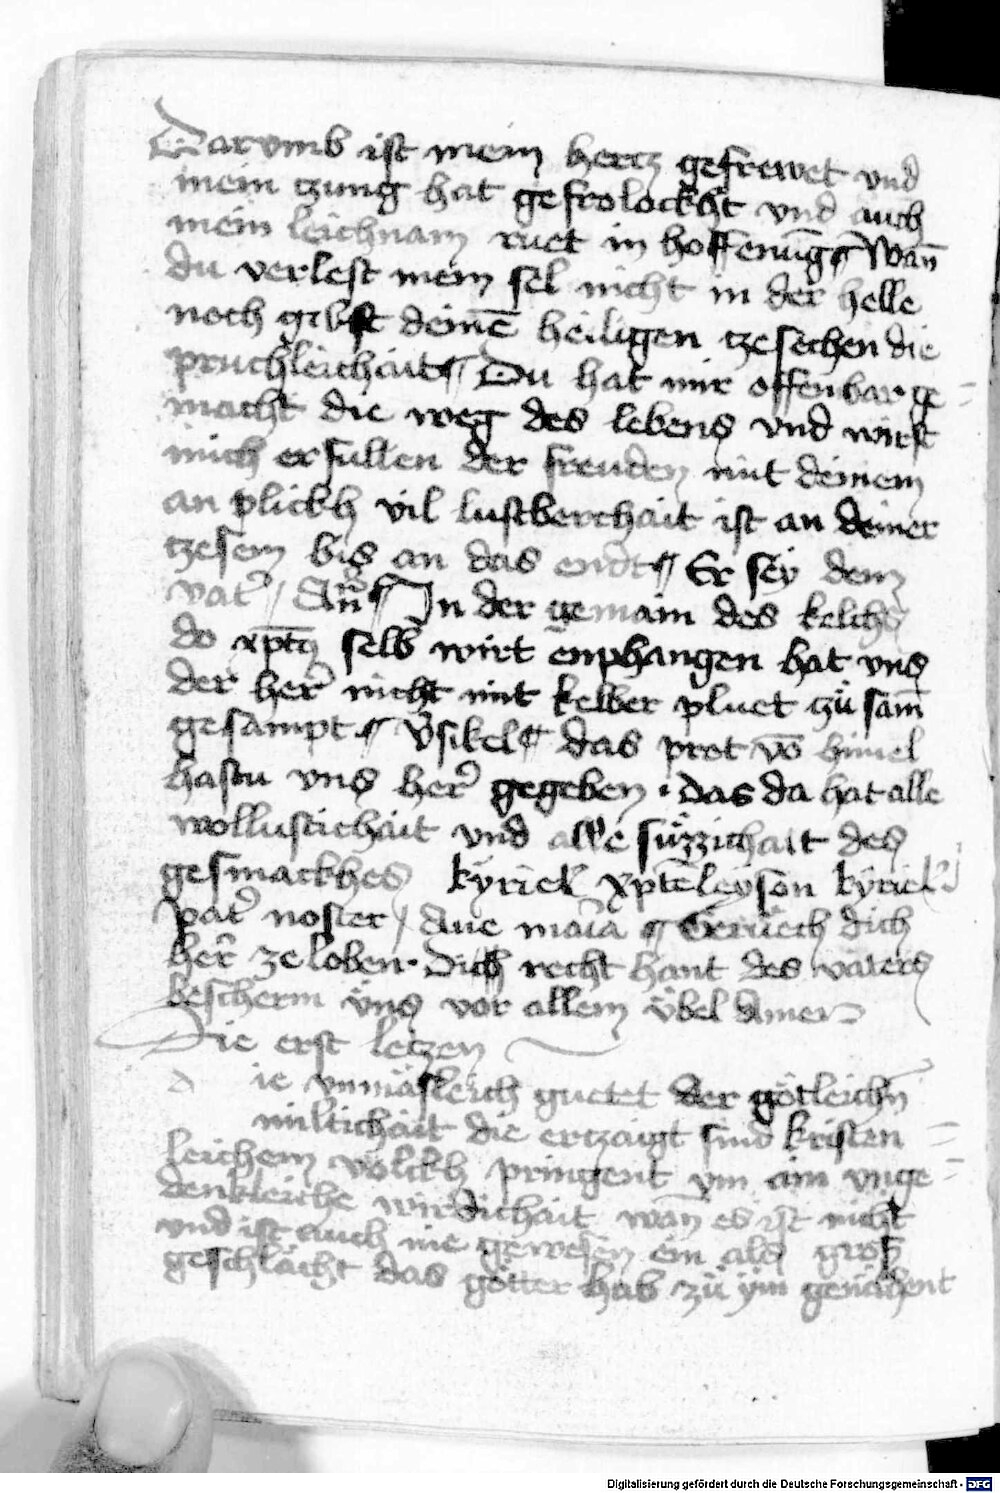 Darvmb ist mein hertz gefrewet vnd
mein tzung hat gefrolockht vnd auch
mein leichnam ruet in hoffenūg ¶ Wañ
du verlest mein sel nicht in der helle
noch gibst deinē heiligen tzesechen die
pruchleichait ¶ Du hat mir offenbar ge=
macht die weg des lebens vnd wirst
mich erfullen der freuden mit deinem
an plickh vil lustberchait ist an deiner
tzesem bis an das endt ¶ Er sey dem
vat' / Añ ¶ In der gemain des kelchs
do xpūs selb wirt enphangen hat vns
der her' nicht mit kelber pluet zů sam̄
gesampt ¶ V̓sikel ¶ das prot vō himel
hastu vns her' gegeben · das da hat alle
wollustichait vnd alle süzzichait des
gesmackhes kyriel xp̄eleyson kyriel
pat' noster / Aue maīa ¶ Geruech dich
her' ze loben · Dich recht hant des vaters
bescherm vns vor allem übel Amen
Die erst letzen
d ie vnmäsleich guetet der götleichn̄
miltichait die ertzaigt sind kristen=
leichem völckh pringent ym ain vnge=
denkleiche wirdichait wan̄ es ist nicht
vnd ist auch nie gewesen ein als gros
geschlächt das götter hab zů ym genächent
Digitalisierung gefördert durch die Deutsche Forschungsgemeinschaft - DFG